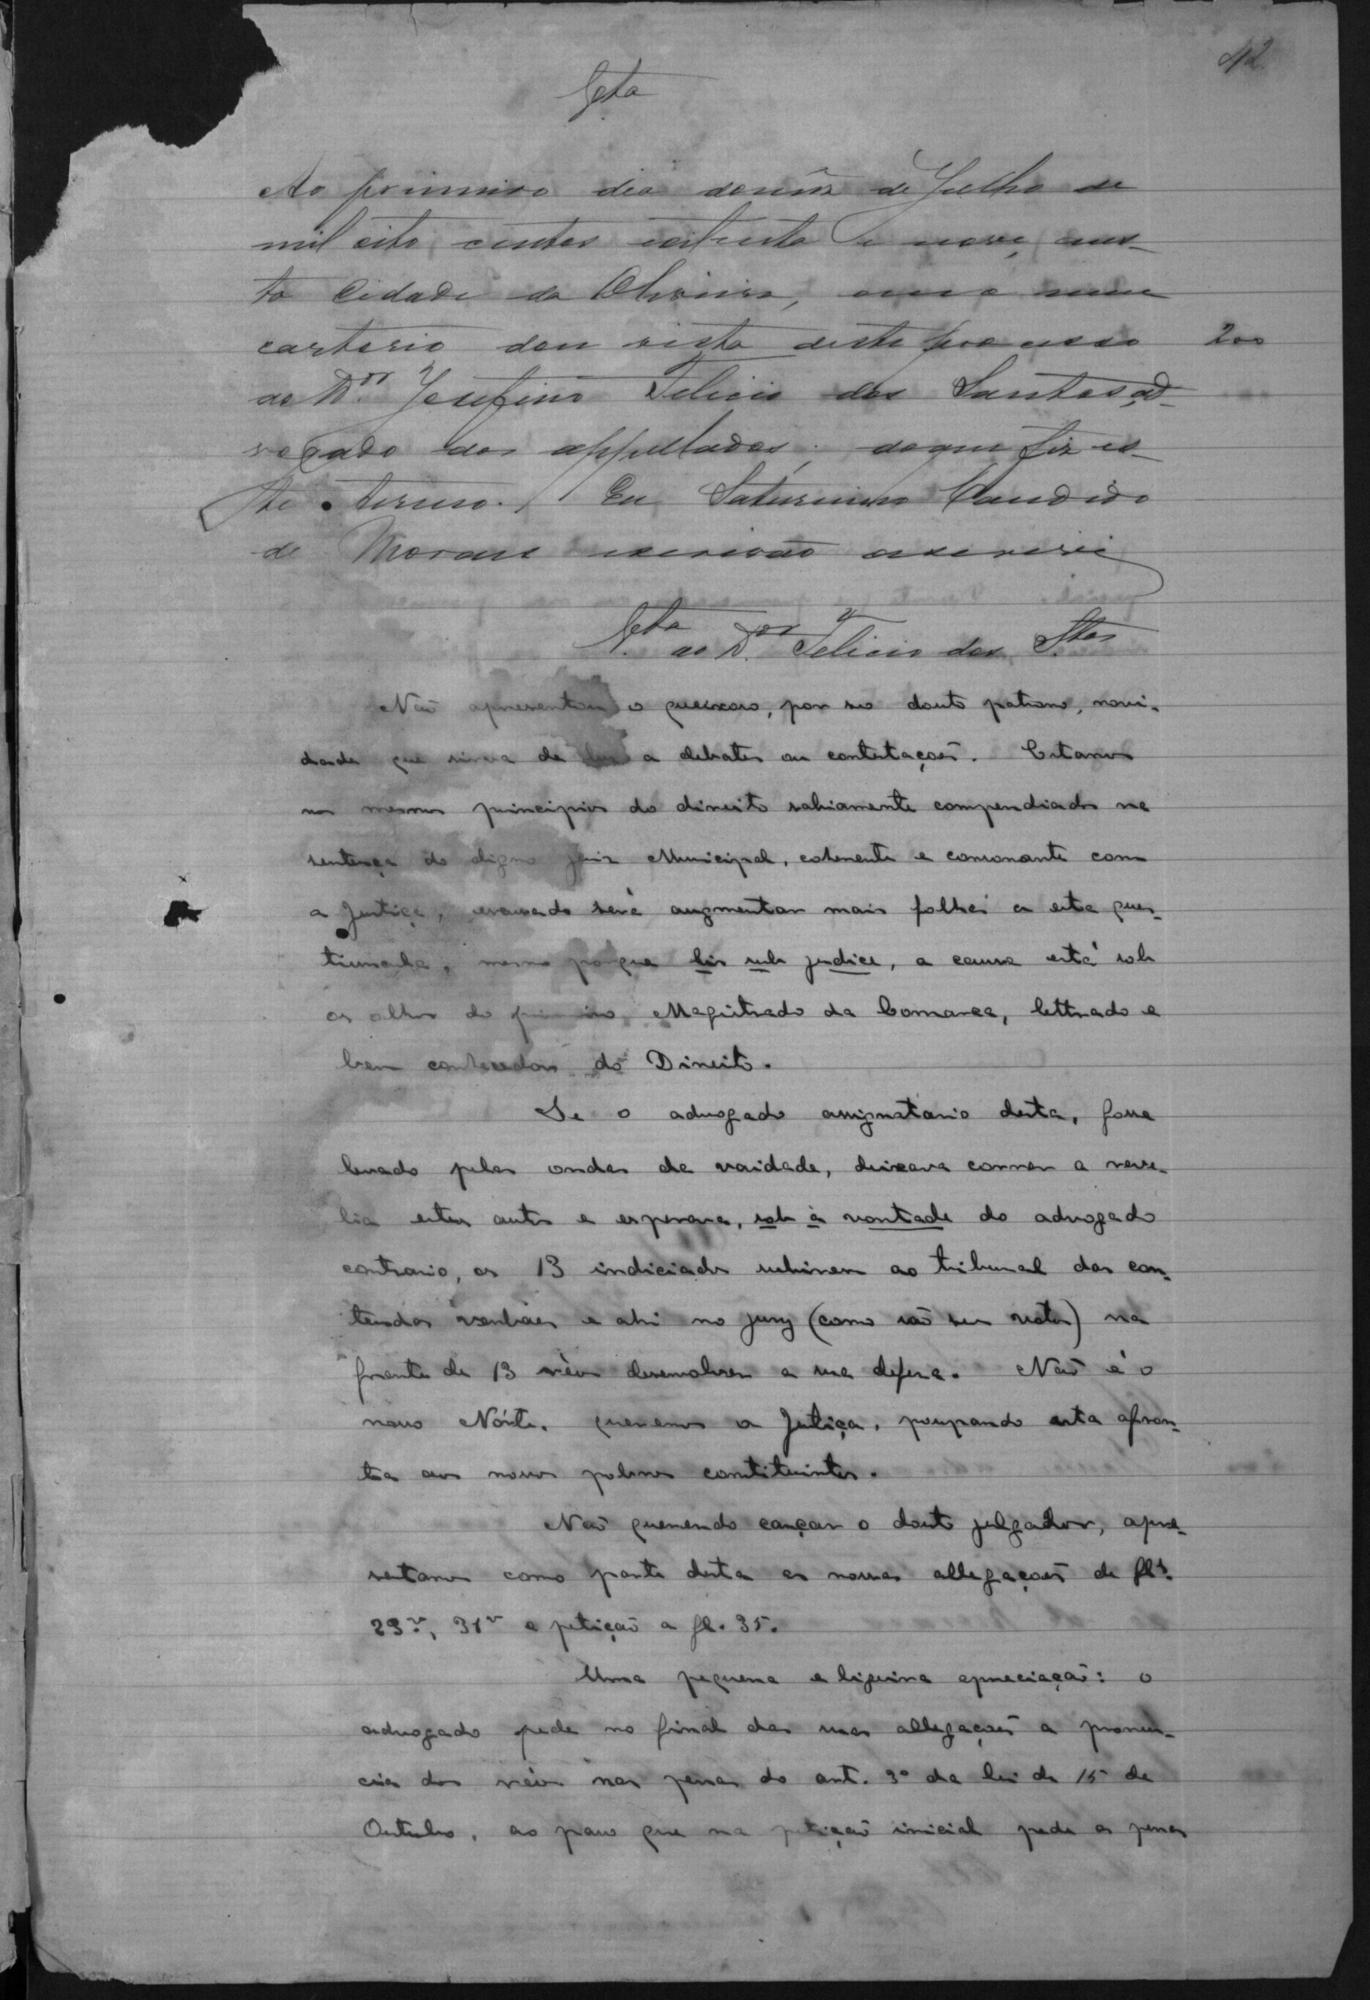 42
Vta
Ao primeiro dia do mez de Julho de
mil oito centos oitenta e nove, nes-
ta Cidade da Oliveira, em o meu
cartorio dou vista deste processo
200
ao Dor Josefino Felicio dos Santos, ad-
vogado dos appellados; do que fiz es-
te termo. Eu Saturnino Candido
de Moraes escrivão o escrevi
Vta ao Dor Felicio dos Stos
Não apresentou o queixoso, por seo douto patrono, novi-
dade que sirva de a debates ou contestações. Estamos
nos mesmos principios do direito sabiamente compendiados na
sentença do digno Juiz Municipal, coherente e consonante com
a Justiça, escusado será augmentar mais folhas a esta ques-
tiuncula, mesmo porque lis sub judice, a causa está sob
os olhos do primeiro Magistrado da Comarca, lettrado e
bem conhecedor do Direito.
Se o advogado assignatario desta, fosse
levado pelas ondas da vaidade, deixava correr a reve-
lia estes autos e esperava, sob à vontade do advogado
contrario, os 13 indiciados subirem ao tribunal das con-
tendas verbaes e ahi no jury (como são seu votos) na
frente de 13 réos desenvolver a sua defesa. Não é o
nosso Nórte, queremos a Justiça, poupando esta afron-
ta aos nossos pobres constituintes.
Não querendo cançar o douto julgador, apre-
sentamos como parte desta as nossas allegações de fls.
29v, 31v e petição a fl. 35.
Uma pequena e ligeira apreciação: o
advogado pede no final das suas allegações a pronun-
cia dos réos nas penas do art. 3º da lei de 15 de
Outubro, ao passo que na petição inicial pede as penas